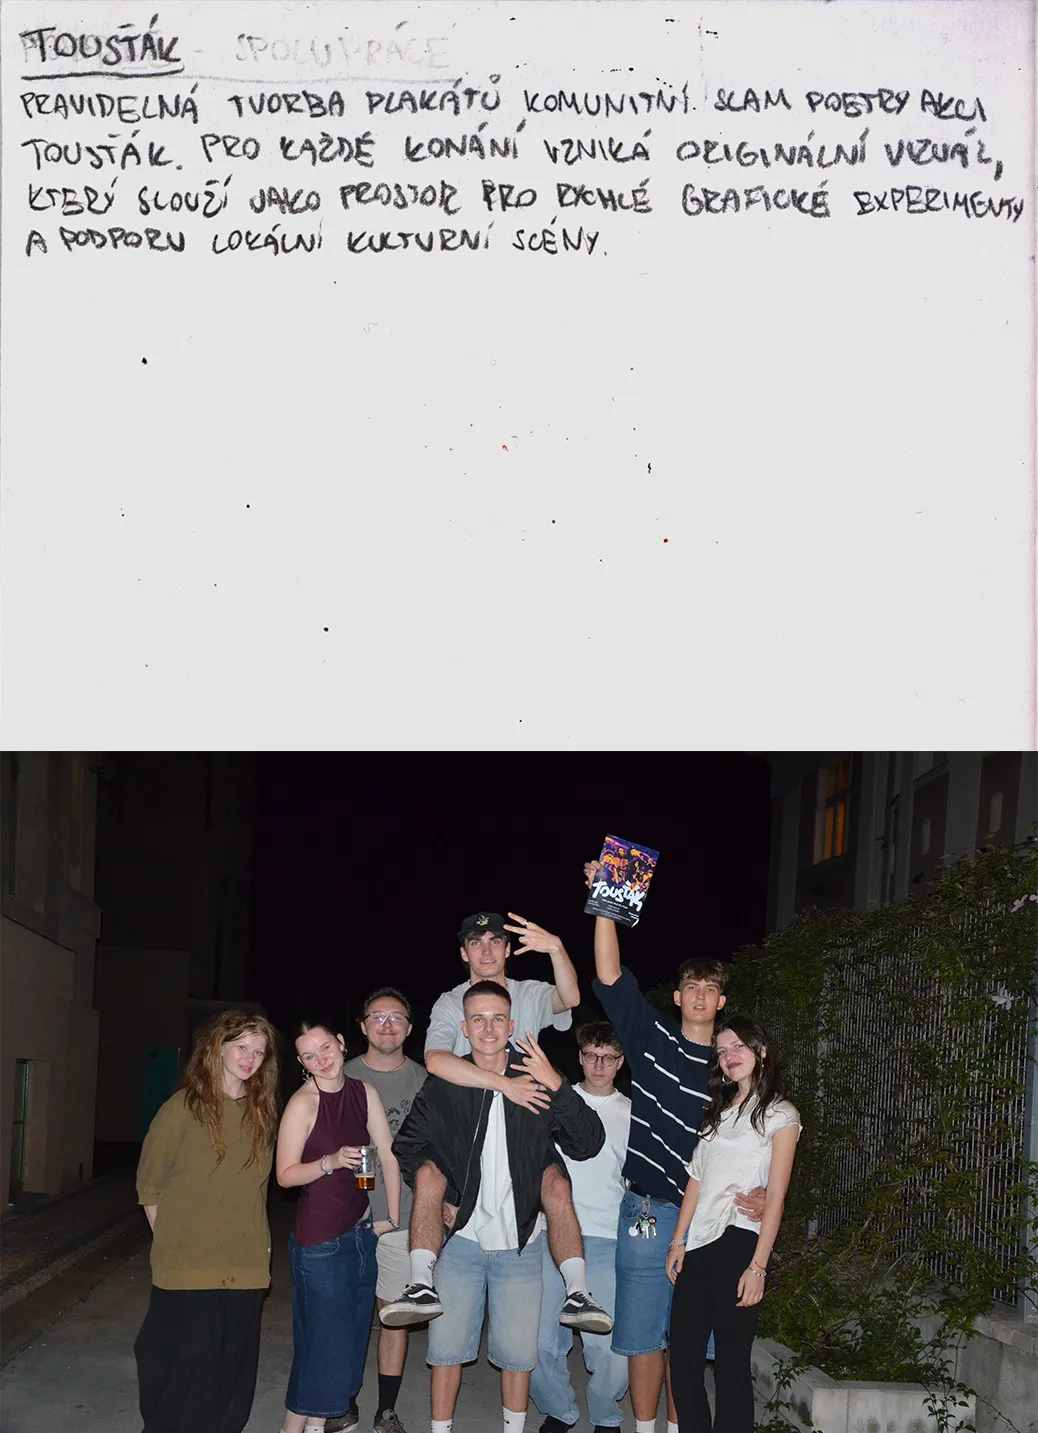 TOUSŤÁK - SPOLUPRÁCE
PRAVIDELNÁ TVORBA PLAKÁTŮ KOMUNITNÍ SLAM POETRY AKCI
TOUSŤÁK. PRO KAŽDÉ KONÁNÍ VZNIKÁ ORIGINÁLNÍ VIZUÁL,
KTERÝ SLOUŽÍ JAKO PROSTOR PRO RYCHLÉ GRAFICKÉ EXPERIMENTY
A PODPORU LOKÁLNÍ KULTURNÍ SCÉNY.
TOUSŤÁK